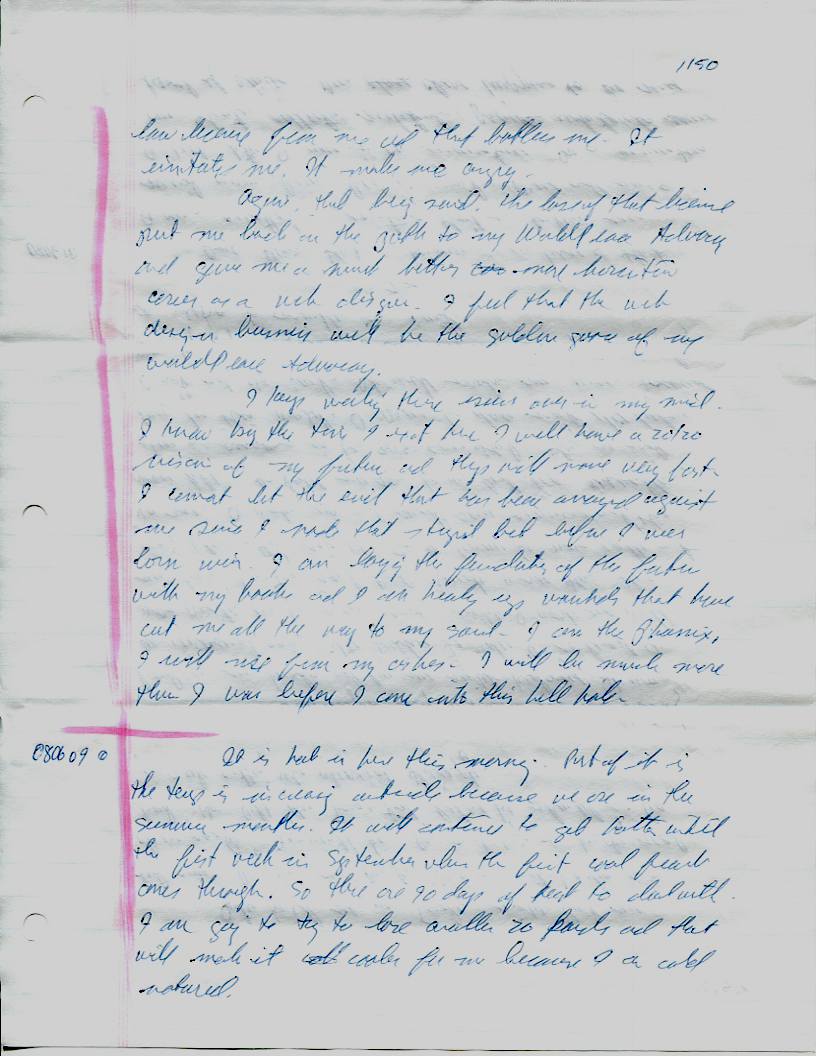 1150
law license from me and that bothers me. It
irritates me. It makes me angry.
Again, that being said, the loss of that license
put me back on the path to my World Peace Advocacy
and gave me a much better more
career as a web designer. I feel that the web
design business will be the golden goose of my
world Peace Advocacy.
I keep working these issues over in my mind.
I know by the time I exit here I will have a 20/20
vision of my future and things will move very fast.
I cannot let the evil that has been arrayed against
me since I made that stupid bet before I was
born win. I am laying the foundation of the future
with my books and I am healing ego wounds that have
cut me all the way to my soul. I am the Phoenix,
I will rise from my ashes. I will be much more
than I was before I came into this hell hole.
080609
It is hot in here this morning. Part of it is
the temp is increasing outside because we are in the
summer months. It will continue to get hotter until
the first week in September when the first cool front
comes through. So there are 90 days of heat to deal with.
I am going to try to lose another 20 pounds and that
will make it cooler for me because I am cold
natured.